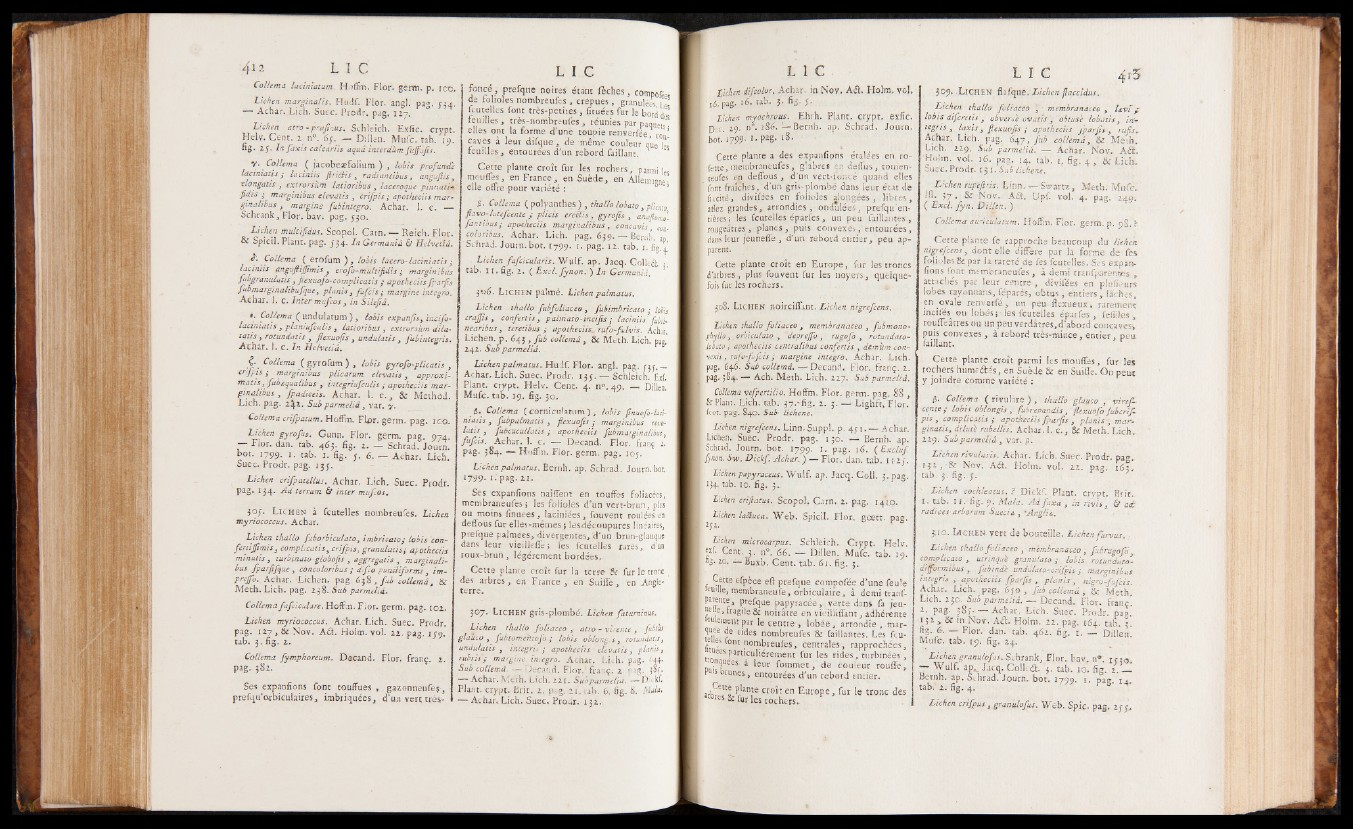 412 L I C
Collema laciniatum. Hoffm. Flor. germ. p. 100.
Lichen marginalis. Hudſ. Flor. angl. pag. 534.
— Achar. Lich. Suec. Prodr. pag. 127.
Lichen atro-pruinoſus. Schleich. Exſic. crypt.
Helv. Cent. 2. n°. 65. — Dillen. Muſc. tab. 19.
fig. 25. In ſaxis calcariis aquâ interdùm ſuffuſis.
γ. Collema (jacobeæfolium), lobis profundè
laciniatis; laciniis ſtrictis, radiantibus, anguſtis,
elongatis, extrorsùm latioribus, laceroque pinnati-
fidis; marginibus elevatis, criſpis; apotheciis mar-
ginalibus, margine ſubintegro. Achar. l. c. —
Schrank, Flor. bav. pag. 530.
Lichen multifidus. Scopol. Carn. — Reich. Flor.
& Spicil. Plant. pag. 534. In Germaniâ & Helvetiâ.
δ. Collema (eroſum), lobis lacero-laciniatis;
laciniis anguſtiſſimis, eroſo-multifidis; marginibus
ſubgranulatis, flexuoſo-complicatis; apotheciis ſparſis
ſubmarginalibuſque, planis, fuſcis; margine integro.
Achar. l. c. Inter muſcos, in Sileſiâ.
ε. Collema (undulatum), lobis expanſis, inciſo-
laciniatis, planiuſculis, latioribus, extrorsùm dila-
tatis, rotundatis, flexuoſis, undulatis, ſubintegris.
Achar. l. c. In Helvetiâ.
ζ. Collema (gyroſum), lobis gyroſo-plicatis,
criſpis; marginibus plicarum elevatis, approxi-
matis, ſubæqualibus, integriuſculis; apotheciis mar-
ginalibus, ſpadiceis. Achar. l. c., & Method.
Lich. pag. 242. Sub parmeliâ, var. γ.
Collema criſpatum. Hoffm. Flor. germ. pag. 100.
Lichen gyroſus. Gunn. Flor. germ. pag. 974.
— Flor. dan. tab. 463. fig. 2. — Schrad. Journ.
bot. 1799. 1. tab. 2. fig. 5. 6. — Achar. Lich.
Suec. Prodr. pag. 135.
Lichen criſpatellus. Achar. Lich. Suec. Prodr.
pag. 134. Ad terram & inter muſcos.
305. LICHEN à ſcutelles nombreuſes. Lichen
myriococcus. Achar.
Lichen thallo ſuborbiculato, imbricato; lobis con-
fertiſſimis, complicatis, criſpis, granulatis; apotheciis
minutis, turbinato globoſis, aggregatis, marginali-
bus ſparſiſque, concoloribus; diſco punctiformi, im-
preſſo. Achar. Lichen. pag. 638, ſub collemâ, &
Meth. Lich. pag. 238. Sub parmeliâ.
Collema faſciculare. Hoffm. Flor. germ. pag. 102.
Lichen myriococcus. Achar. Lich. Suec. Prodr.
pag. 127, & Nov. Act. Holm. vol. 22. pag. 159.
tab. 3. fig. 2.
Collema ſymphoreum. Decand. Flor. franç. 2.
pag. 382.
Ses expanſions ſont touffues, gazonneuſes,
preſqu'orbiculaires, imbriquées, d'un vert très-
L I C
foncé, preſque noires étant ſèches, compoſées
de folioles nombreuſes, crépues, granulées. Les
ſcutelles ſont très-petites, ſituées ſur le bord des
feuilles, très-nombreuſes, réunies par paquets;
elles ont la forme d'une toupie renverſée, con-
caves à leur diſque, de même couleur que les
feuilles, entourées d'un rebord ſaillant.
Cette plante croît ſur les rochers, parmi les
mouſſes, en France, en Suède, en Allemagne;
elle offre pour variété:
β. Collema (polyanthes), thallo lobato, plicato,
flavo-luteſcente; plicis erectis, gyroſis, anaſtomo-
ſantibus; apotheciis marginalibus, concavis, con-
coloribus. Achar. Lich. pag. 639. — Bernh. ap.
Schrad. Journ. bot. 1799. 1. pag. 12. tab. 1. fig. 4.
Lichen faſcicularis. Wulf. ap. Jacq. Collect. 3.
tab. 11. fig. 2. (Excl. ſynon.) In Germaniâ.
306. LICHEN palmé. Lichen palmatus.
Lichen thallo ſubfoliaceo, ſubimbricato; lobis
craſſis, confertis, palmato-inciſis; laciniis ſubli-
nearibus, teretibus; apotheciis rufo-fulvis. Achar.
Lichen. p. 643, ſub collemâ, & Meth. Lich. pag.
242. Sub parmeliâ.
Lichen palmatus. Hudſ. Flor. angl. pag. 535. —
Achar. Lich. Suec. Prodr. 135. — Schleich. Exſ.
Plant. crypt. Helv. Cent. 4. n°. 49. — Dillen.
Muſc. tab. 19. fig. 30.
β. Collema (corniculatum), lobis ſinuoſo-laci-
niatis, ſubpalmatis, flexuoſis; marginibus revo-
lutis, ſubcucullatis; apotheciis ſubmarginalibus,
fuſcis. Achar. l. c. — Decand. Flor. franç. 2.
pag. 384. — Hoffm. Flor. germ. pag. 105.
Lichen palmatus. Bernh. ap. Schrad. Journ. bot.
1799. 1. pag. 22.
Ses expanſions naiſſent en touffes foliacées,
membraneuſes; les folioles d'un vert-brun, plus
ou moins ſinuées, laciniées, ſouvent roulées en
deſſous ſur elles-mêmes; les découpures linéaires,
preſque palmées, divergentes, d'un brun-glauque
dans leur vieilleſſe; les ſcutelles rares, d'un
roux-brun, légérement bordées.
Cette plante croît ſur la terre & ſur le tronc
des arbres, en France, en Suiſſe, en Angle-
terre.
307. LICHEN gris-plombé. Lichen ſaturninus.
Lichen thallo foliaceo, atro-virente, ſubtùs
glauco, ſubtomentoſo; lobis oblongis, rotundatis,
undulatis, integris; apotheciis elevatis, planis,
rubris; margine integro. Achar. Lich. pag. 644.
Sub collemâ. — Decand. Flor. franç. 2. pag. 385.
— Achar. Meth. Lich. 221. Sub parmeliâ. — Dickſ.
Plant. crypt. Brit. 2. pag. 21. tab. 6. fig. 8. Mala.
— Achar. Lich. Suec. Prodr. 132.
L I C
Lichen diſcolor. Achar. in Nov. Act. Holm. vol.
16. pag. 16. tab. 3. fig. 5.
Lichen myochrous. Ehrh. Plant. crypt. exſic.
Dec. 29. n°. 286. — Bernh. ap. Schrad. Journ.
bot. 1799. 1. pag. 18.
Cette plante a des expanſions étalées en ro-
ſette, membraneuſes, glabres en deſſus, tomen-
teuſes en deſſous, d'un vert-foncé quand elles
ſont fraîches, d'un gris-plombé dans leur état de
ſiccité, diviſées en folioles alongées, libres,
aſſez grandes, arrondies, ondulées, preſqu'en-
tières; les ſcutelles éparſes, un peu ſaillantes,
rougeâtres, planes, puis convexes, entourées,
dans leur jeuneſſe, d'un rebord entier, peu ap-
parent.
Cette plante croît en Europe, ſur les troncs
d'arbres, plus ſouvent ſur les noyers, quelque-
fois ſur les rochers.
308. LICHEN noirciſſant. Lichen nigreſcens.
Lichen thallo foliaceo, membranaceo, ſubmono-
phyllo, orbiculato, depreſſo, rugoſo, rotundato-
lobato, apotheciis centralibus confertis, demùm con-
vexis, rufo-fuſcis; margine integro. Achar. Lich.
pag. 646. Sub collemâ. — Decand. Flor. franç. 2.
pag. 384. — Ach. Meth. Lich. 227. Sub parmeliâ.
Collema veſpertilio. Hoffm. Flor. germ. pag. 88,
& Plant. Lich. tab. 37. fig. 2. 3. — Lightf. Flor.
ſcot. pag. 840. Sub lichene.
Lichen nigreſcens. Linn. Suppl. p. 451. — Achar.
Lichen. Suec. Prodr. pag. 130. — Bernh. ap.
Schrad. Journ. bot. 1799. 1. pag. 16. (Excluſ.
ſynon. Sw. Dickſ. Achar.) — Flor. dan. tab. 1125.
Lichen papyraceus. Wulf. ap. Jacq. Coll. 3. pag.
134. tab. 10. fig. 3.
Lichen criſtatus. Scopol. Carn. 2. pag. 1410.
Lichen lactuca. Web. Spicil. Flor. gœtt. pag.
252.
Lichen microcarpus. Schleich. Crypt. Helv.
exſ. Cent. 3. n°. 66. — Dillen. Muſc. tab. 19.
fig. 20. — Buxb. Cent. tab. 61. fig. 3.
Cette eſpèce eſt preſque compoſée d'une ſeule
feuille, membraneuſe, orbiculaire, à demi tranſ-
parente, preſque papyracée, verte dans ſa jeu-
neſſe, fragile & noirâtre en vieilliſſant, adhérente
ſeulement par le centre, lobée, arrondie, mar-
quée de rides nombreuſes & ſaillantes. Les ſcu-
telles ſont nombreuſes, centrales, rapprochées,
ſituées particuliérement ſur les rides, turbinées,
tronquées à leur ſommet, de couleur rouſſe,
puis brunes, entourées d'un rebord entier.
Cette plante croît en Europe, ſur le tronc des
arbres & ſur les rochers.
L I C 413
309. LICHEN flaſque. Lichen flaccidus.
Lichen thallo foliaceo, membranaceo, lævi;
lobis diſcretis, obversè ovatis, obtusè lobatis, in-
tegris, laxis, flexuoſis; apotheciis ſparſis, rufis.
Achar. Lich. pag. 647, ſub collemâ, & Meth.
Lich. 229. Sub parmeliâ. — Achar. Nov. Act.
Holm. vol. 16. pag. 14. tab. 1. fig. 4, & Lich.
Suec. Prodr. 131. Sub lichene.
Lichen rupeſtris. Linn. — Swartz, Meth. Muſc.
Ill. 37, & Nov. Act. Upſ. vol. 4. pag. 249.
(Excl. ſyn. Dillen.)
Collema auriculatum. Hoffm. Flor. germ. p. 98.?
Cette plante ſe rapproche beaucoup du lichen
nigreſcens, dont elle diffère par la forme de ſes
folioles & par la rareté de ſes ſcutelles. Ses expan-
ſions ſont membraneuſes, à demi tranſparentes,
attachées par leur centre, diviſées en pluſieurs
lobes rayonnans, ſéparés, obtus, entiers, lâches,
en ovale renverſé, un peu flexueux, rarement
inciſés ou lobés; les ſcutelles éparſes, ſeſſiles,
rouſſeâtres ou un peu verdâtres, d'abord concaves,
puis convexes, à rebord très-mince, entier, peu
ſaillant.
Cette plante croît parmi les mouſſes, ſur les
rochers humectés, en Suède & en Suiſſe. On peut
y joindre comme variété:
β. Collema (rivulare), thallo glauco, vireſ-
cente; lobis oblongis, ſubrepandis, flexuoſo ſubcriſ-
pis, complicatis; apotheciis ſparſis, planis, mar-
ginatis, dilutè rubellis. Achar. l. c., & Meth. Lich.
229. Sub parmeliâ, var. β.
Lichen rivularis. Achar. Lich. Suec. Prodr. pag.
132, & Nov. Act. Holm. vol. 22. pag. 163.
tab. 3. fig. 5.
Lichen cochleatus.? Dickſ. Plant. crypt. Brit.
1. tab. 11. fig. 9. Mala. Ad ſaxa, in rivis, & ad
radices arborum Sueciæ, Angliæ.
310. LICHEN vert de bouteille. Lichen furvus.
Lichen thallo foliaceo, membranaceo, ſubrugoſo,
complicato, utrinquè granulato; lobis rotundato-
difformibus, ſubindè undulato-criſpis; marginibus
integris, apotheciis ſparſis, planis, nigro-fuſcis.
Achar. Lich. pag. 650, ſub collemâ, & Meth.
Lich. 230. Sub parmeliâ. — Decand. Flor. franç.
2. pag. 385. — Achar. Lich. Suec. Prodr. pag.
132, & in Nov. Act. Holm. 22. pag. 164. tab. 3.
fig. 6. — Flor. dan. tab. 462. fig. 1. — Dillen.
Muſc. tab. 19. fig. 24.
Lichen granuloſus. Schrank, Flor. bav. n°. 1530.
— Wulf. ap. Jacq. Collect. 3. tab. 10. fig. 2. —
Bernh. ap. Schrad. Journ. bot. 1799. 1. pag. 14.
tab. 2. fig. 4.
Lichen criſpus, granuloſus. Web. Spic. pag. 255.